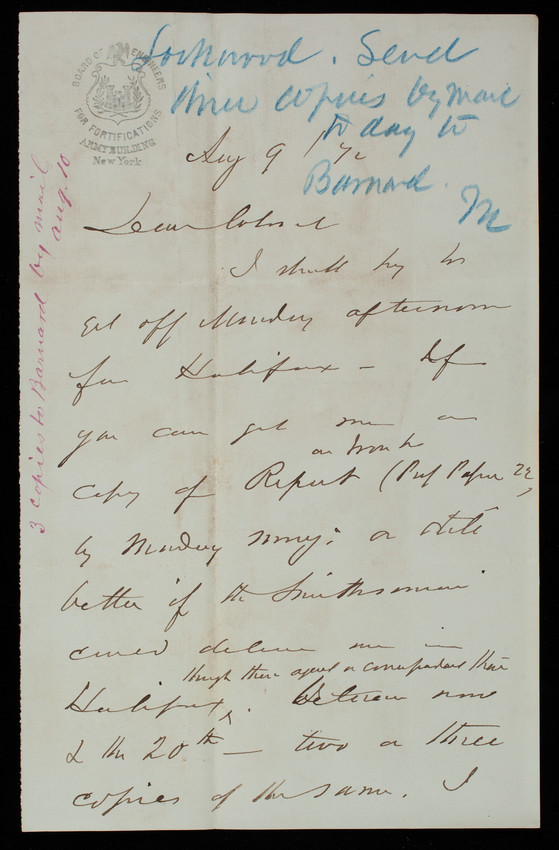 BOARD OF ENGINEERS
FOR FORTIFICATIONS
ARMY BUILDING
New York
Lockwood. Send
three copies by mail
to day to
Barnard.
3 copies to Barnard by mail
aug. 10
Aug 9 / 72
Dear Colonel
I shall try to
get off Monday afternoon
for Halifax — If
you can get me a
copy of Report (Prof Paper 22)
by Monday morng: or still
better if the Smithsonian
could deliver me in
through their agent or correspondent there
Halifax, between now
& the 20th — two or three
copies of the same. I